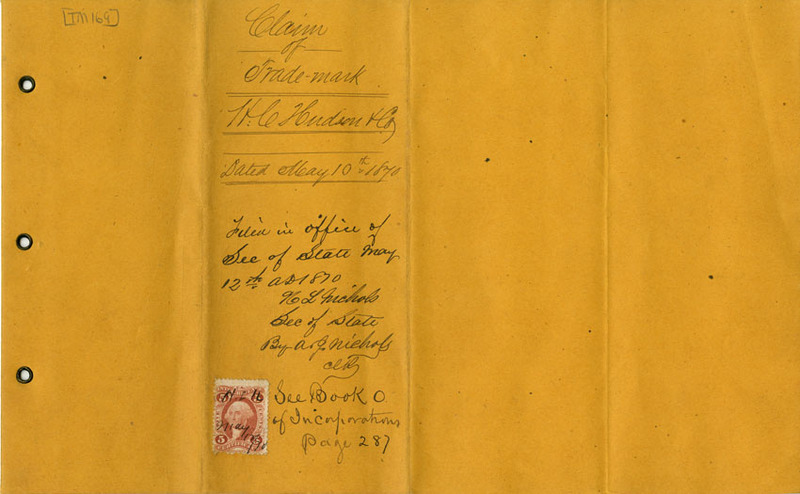 [TM 169]
Claim
of
Trade-mark
H. C Hudson & Co
Dated May 10th 1870
Filed in office of
Sec of State May
12th A D 1870
H L Nichols
Sec of State
By A. J. Nichols
clk
See Book O
of Incorporations
Page 287
5
May